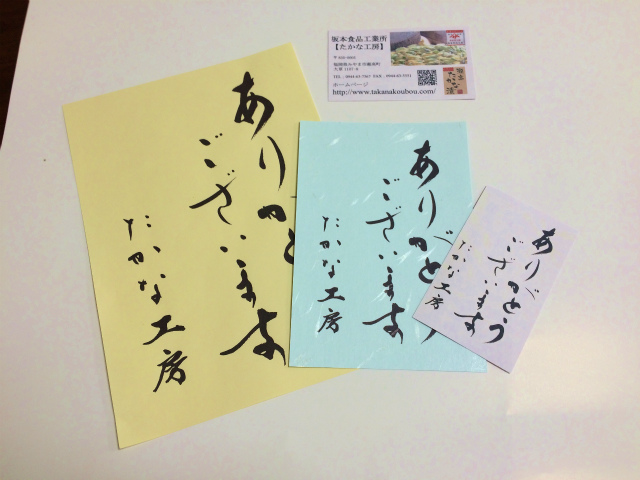 ありがとう
ございます
たかな工房
ありがとう
ございます
たかな工房
ありがとう
ございます
たかな工房
坂本食品工業所
【たかな工房】
ホームページ
http://www.takanakoubou.com/